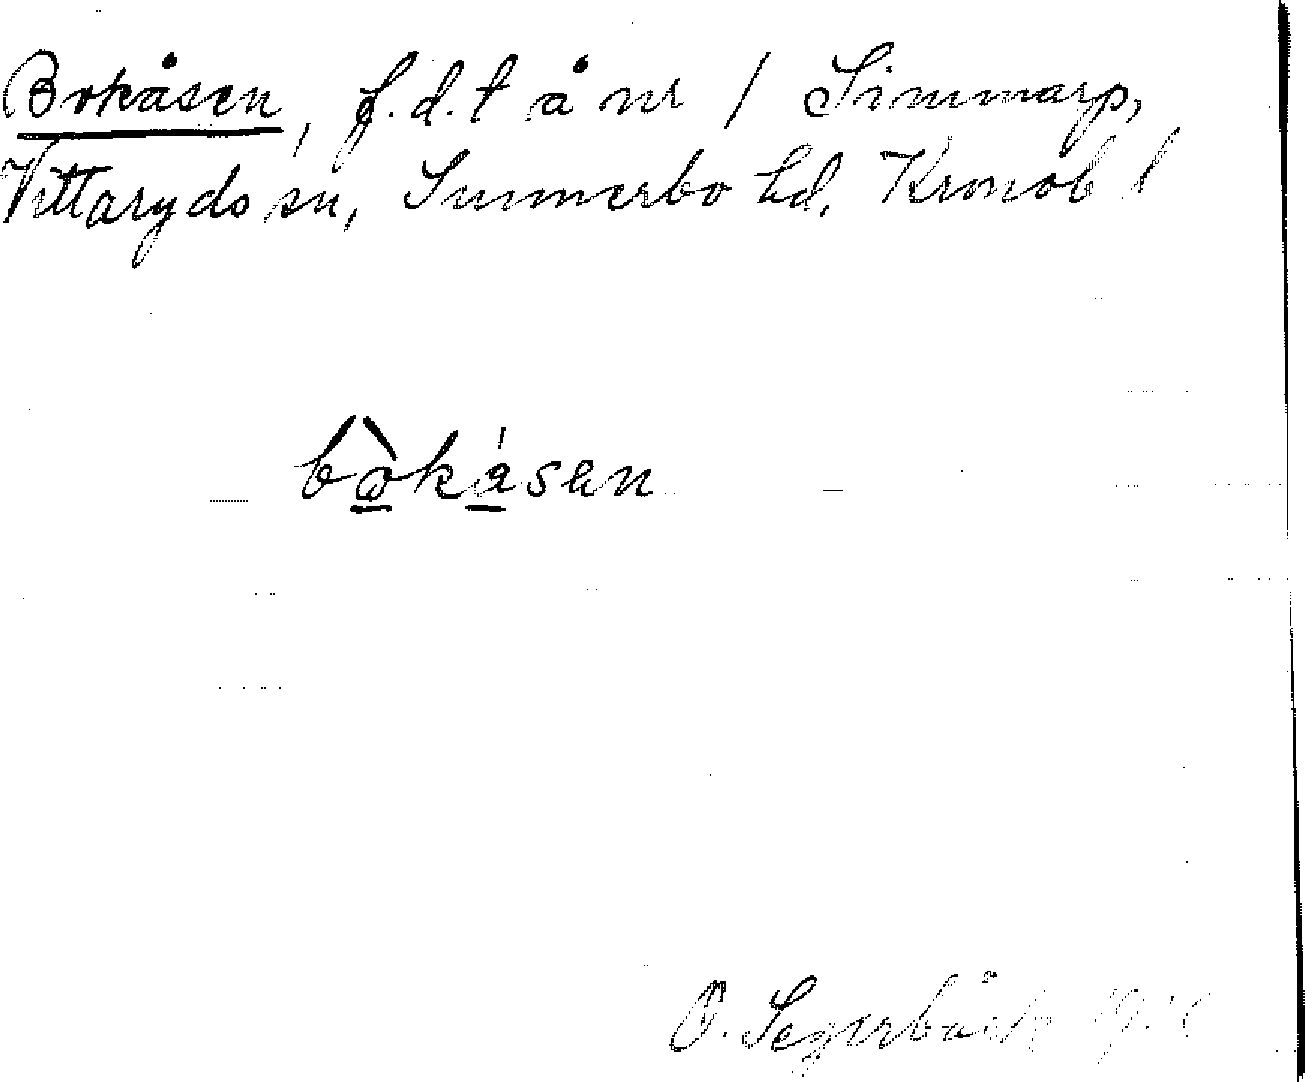 Bokåsen, f.d.t å nr 1 Simmarp,
Vittaryds sn, Sunnerbo hd. Kronob l
bò̱̱ka̱̍sen
O. Segerbäck